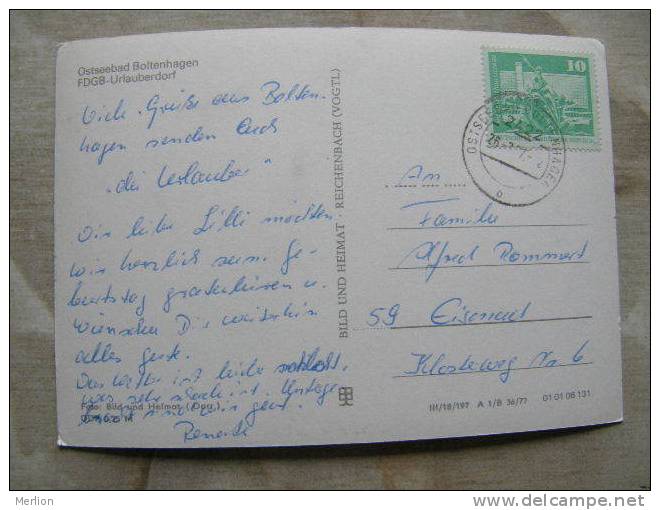 Ostseebad Boltenhagen
FDGB-Urlauberdorf
Viele Grüße aus Bolten-
hagen senden Euch
"die Urlauber"
Dir liebe Lilli möchten
wir herzlich zum Ge-
burtstag gratulieren u.
wünschen Dir weiterhin
alles gute.
Das Wetter ist leider
was sehr schade ist.
gut.
Foto: Bild und Heimat
BILD UND HEIMAT · REICHENBACH (VOGTL)
10
An
Familie
Alfred
59 Eisenach
Klosterweg Nr 6
III/18/197 A 1/B 36/77 01 01 06 131
Merlion
www.delcampe.net